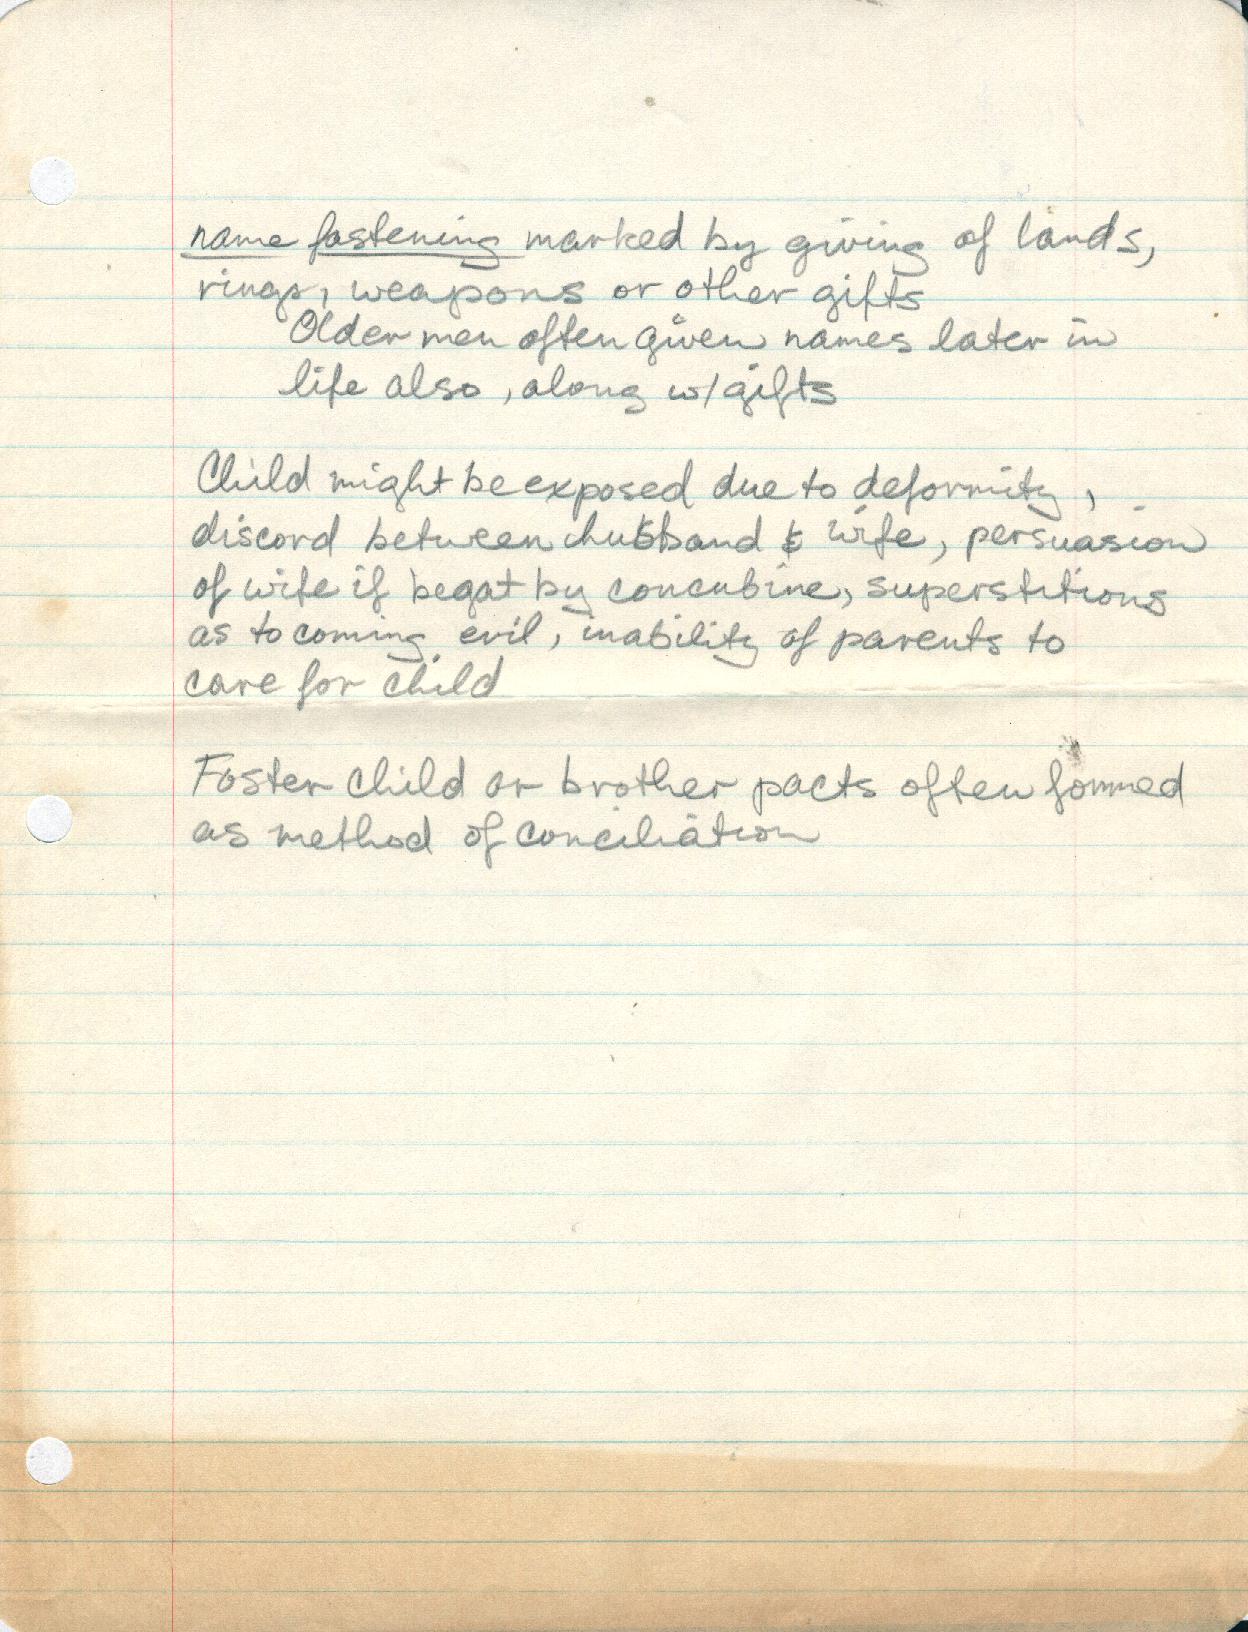 name fastening marked by giving of lands,
rings, weapons or other gifts
Older men often given names later in
life also, along w/ gifts
Child might be exposed due to deformity,
discord between hubband & wife, persuasion
of wife if begat by concubine, superstitions
as to coming evil, inability of parents to
care for child
Foster child or brother pacts often formed
as method of conciliation